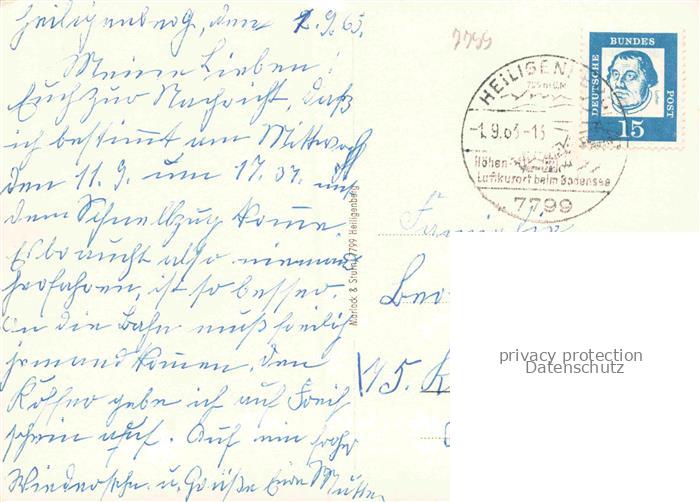 Heiligenberg, den 1.9.63.
Meine Lieben!
Euch zur Nachricht, daß
ich bestimmt am Mittwoch
den 11.9. um 17.37. mit
dem Schnellzug komme.
Es braucht also niemand
herfahren, ist so besser.
An die Bahn muß freilich
jemand kommen, den
Koffer gebe ich auf Frei
schein auf. Auf ein frohes
Wiedersehn u. Grüße Eure Mutter
7799
DEUTSCHE
BUNDES
POST
15
HEILIGENBERG
-1.9.63-13
Höhen-
Luftkurort beim Bodensee
7799
Marlock & Sturm, 7799 Heiligenberg
Familie
75. K
privacy protection
Datenschutz